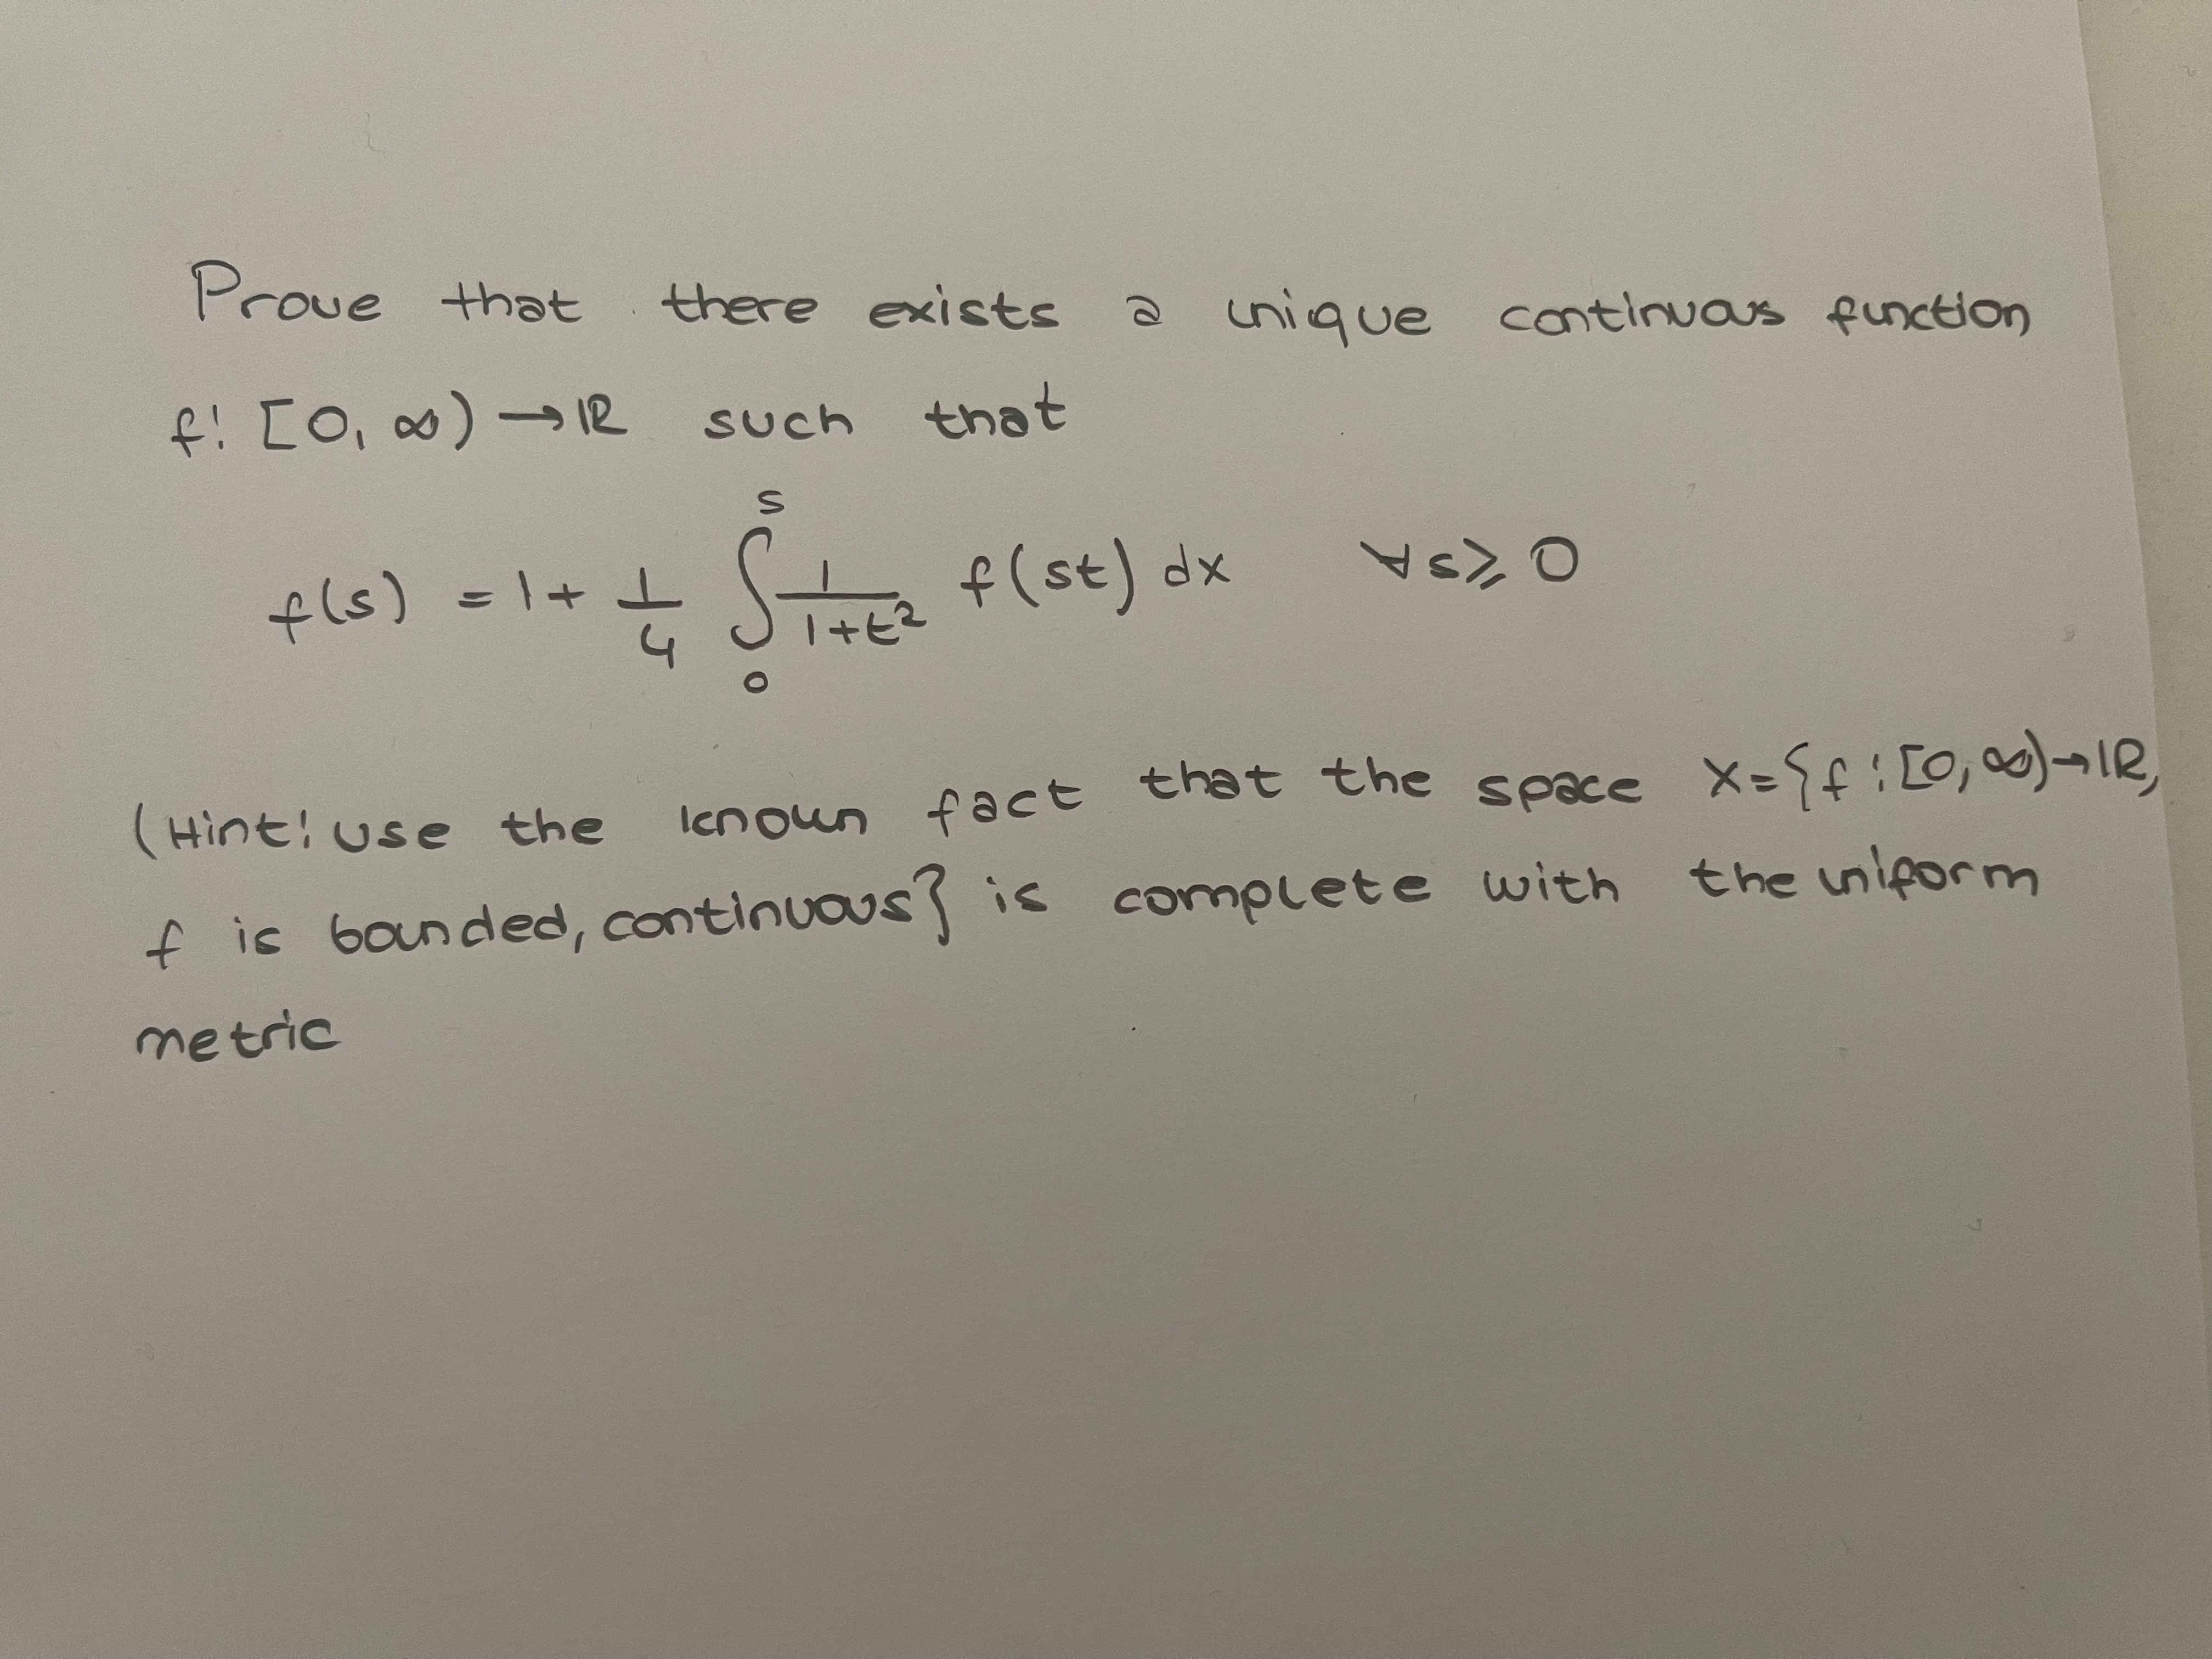 Prove that there exists a unique continuous function
f: [0, ∞) → ℝ such that
f(s) = 1 + 1/4 ∫₀ˢ 1/(1+t²) f(st) dx ∀s ≥ 0
(Hint: use the known fact that the space X = {f: [0, ∞) → ℝ,
f is bounded, continuous} is complete with the uniform
metric